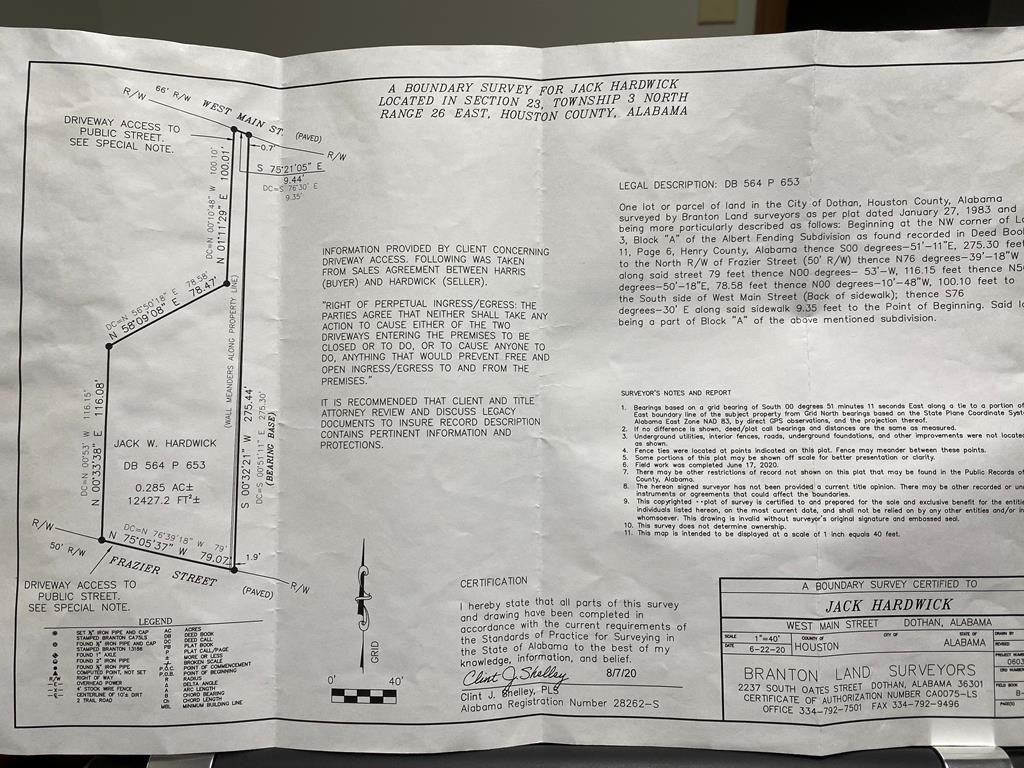 A BOUNDARY SURVEY FOR JACK HARDWICK
LOCATED IN SECTION 23, TOWNSHIP 3 NORTH
RANGE 26 EAST, HOUSTON COUNTY, ALABAMA
R/W
66' R/W
WEST MAIN ST.
(PAVED)
R/W
DRIVEWAY ACCESS TO
PUBLIC STREET.
SEE SPECIAL NOTE.
0.7'
S 75°21'05" E
9.44'
DC=S 76°30' E
9.35'
DC=N 00°10'48" W 100.10'
N 01°11'29" E 100.01'
DC=N 56°50'18" E 78.58'
N 58°09'08" E 78.47'
(WALL MEANDERS ALONG PROPERTY LINE)
DC=N 00°53' W 116.15'
N 00°33'38" E 116.08'
S 00°32'21" W 275.44'
DC=S 00°51'11" E 275.30'
(BEARING BASE)
JACK W. HARDWICK
DB 564 P 653
0.285 AC±
12427.2 FT²±
R/W
50' R/W
DC=N 76°39'18" W 79'
N 75°05'37" W 79.07'
1.9'
FRAZIER STREET
(PAVED)
R/W
DRIVEWAY ACCESS TO
PUBLIC STREET.
SEE SPECIAL NOTE.
INFORMATION PROVIDED BY CLIENT CONCERNING
DRIVEWAY ACCESS. FOLLOWING WAS TAKEN
FROM SALES AGREEMENT BETWEEN HARRIS
(BUYER) AND HARDWICK (SELLER).
"RIGHT OF PERPETUAL INGRESS/EGRESS: THE
PARTIES AGREE THAT NEITHER SHALL TAKE ANY
ACTION TO CAUSE EITHER OF THE TWO
DRIVEWAYS ENTERING THE PREMISES TO BE
CLOSED OR TO DO, OR TO CAUSE ANYONE TO
DO, ANYTHING THAT WOULD PREVENT FREE AND
OPEN INGRESS/EGRESS TO AND FROM THE
PREMISES."
IT IS RECOMMENDED THAT CLIENT AND TITLE
ATTORNEY REVIEW AND DISCUSS LEGACY
DOCUMENTS TO INSURE RECORD DESCRIPTION
CONTAINS PERTINENT INFORMATION AND
PROTECTIONS.
LEGAL DESCRIPTION: DB 564 P 653
One lot or parcel of land in the City of Dothan, Houston County, Alabama
surveyed by Branton Land surveyors as per plat dated January 27, 1983 and
being more particularly described as follows: Beginning at the NW corner of
3, Block "A" of the Albert Fending Subdivision as found recorded in Deed Book
11, Page 6, Henry County, Alabama thence S00 degrees-51'-11"E, 275.30 feet
to the North R/W of Frazier Street (50' R/W) thence N76 degrees-39'-18"W
along said street 79 feet thence N00 degrees- 53'-W, 116.15 feet thence
degrees-50'-18"E, 78.58 feet thence N00 degrees-10'-48"W, 100.10 feet to
the South side of West Main Street (Back of sidewalk); thence S76
degrees-30' E along said sidewalk 9.35 feet to the Point of Beginning. Said
being a part of Block "A" of the above mentioned subdivision.
SURVEYOR'S NOTES AND REPORT
1. Bearings based on a grid bearing of South 00 degrees 51 minutes 11 seconds East along a tie to a portion of
East boundary line of the subject property from Grid North bearings based on the State Plane Coordinate
Alabama East Zone NAD 83, by direct GPS observations, and the projection thereof.
2. If no difference is shown, deed/plat call bearings and distances are the same as measured.
3. Underground utilities, interior fences, roads, underground foundations, and other improvements were not
as shown.
4. Fence ties were located at points indicated on this plat. Fence may meander between these points.
5. Some portions of this plat may be shown off scale for better presentation or clarity.
6. Field work was completed June 17, 2020.
7. There may be other restrictions of record not shown on this plat that may be found in the Public Records of
County, Alabama.
8. The hereon signed surveyor has not been provided a current title opinion. There may be other recorded or
instruments or agreements that could affect the boundaries.
9. This copyrighted plat of survey is certified to and prepared for the sole and exclusive benefit for the
individuals listed hereon, on the most current date, and shall not be relied on by any other entities and/or
whomsoever. This drawing is invalid without surveyor's original signature and embossed seal.
10. This survey does not determine ownership.
11. This map is intended to be displayed at a scale of 1 inch equals 40 feet.
GRID
0' 40'
CERTIFICATION
I hereby state that all parts of this survey
and drawing have been completed in
accordance with the current requirements of
the Standards of Practice for Surveying in
the State of Alabama to the best of my
knowledge, information, and belief.
Clint J. Shelley 8/7/20
Clint J. Shelley, PLS
Alabama Registration Number 28262-S
LEGEND
SET ½" IRON PIPE AND CAP
STAMPED BRANTON CA75LS
FOUND ½" IRON PIPE AND CAP
STAMPED BRANTON 13186
FOUND 1" AXLE
FOUND 2" IRON PIPE
COMPUTED POINT, NOT SET
R/W RIGHT OF WAY
OVERHEAD POWER
4' STOCK WIRE FENCE
CENTERLINE OF 10'± DIRT
2 TRAIL ROAD
AC ACRES
DB DEED BOOK
DC DEED CALL
PB PLAT BOOK
P PLAT CALL/PAGE
± MORE OR LESS
BROKEN SCALE
P.O.C. POINT OF COMMENCEMENT
P.O.B. POINT OF BEGINNING
R RADIUS
Δ DELTA ANGLE
A ARC LENGTH
B CHORD BEARING
Ch CHORD LENGTH
MBL MINIMUM BUILDING LINE
A BOUNDARY SURVEY CERTIFIED TO
JACK HARDWICK
WEST MAIN STREET DOTHAN, ALABAMA
SCALE 1"=40'
DATE 6-22-20
COUNTY OF HOUSTON
CITY OF
STATE OF ALABAMA
DRAWN BY
REVISED
PROJECT
FIELD BOOK
PAGE(S)
BRANTON LAND SURVEYORS
2237 SOUTH OATES STREET DOTHAN, ALABAMA 36301
CERTIFICATE OF AUTHORIZATION NUMBER CA0075-LS
OFFICE 334-792-7501 FAX 334-792-9496